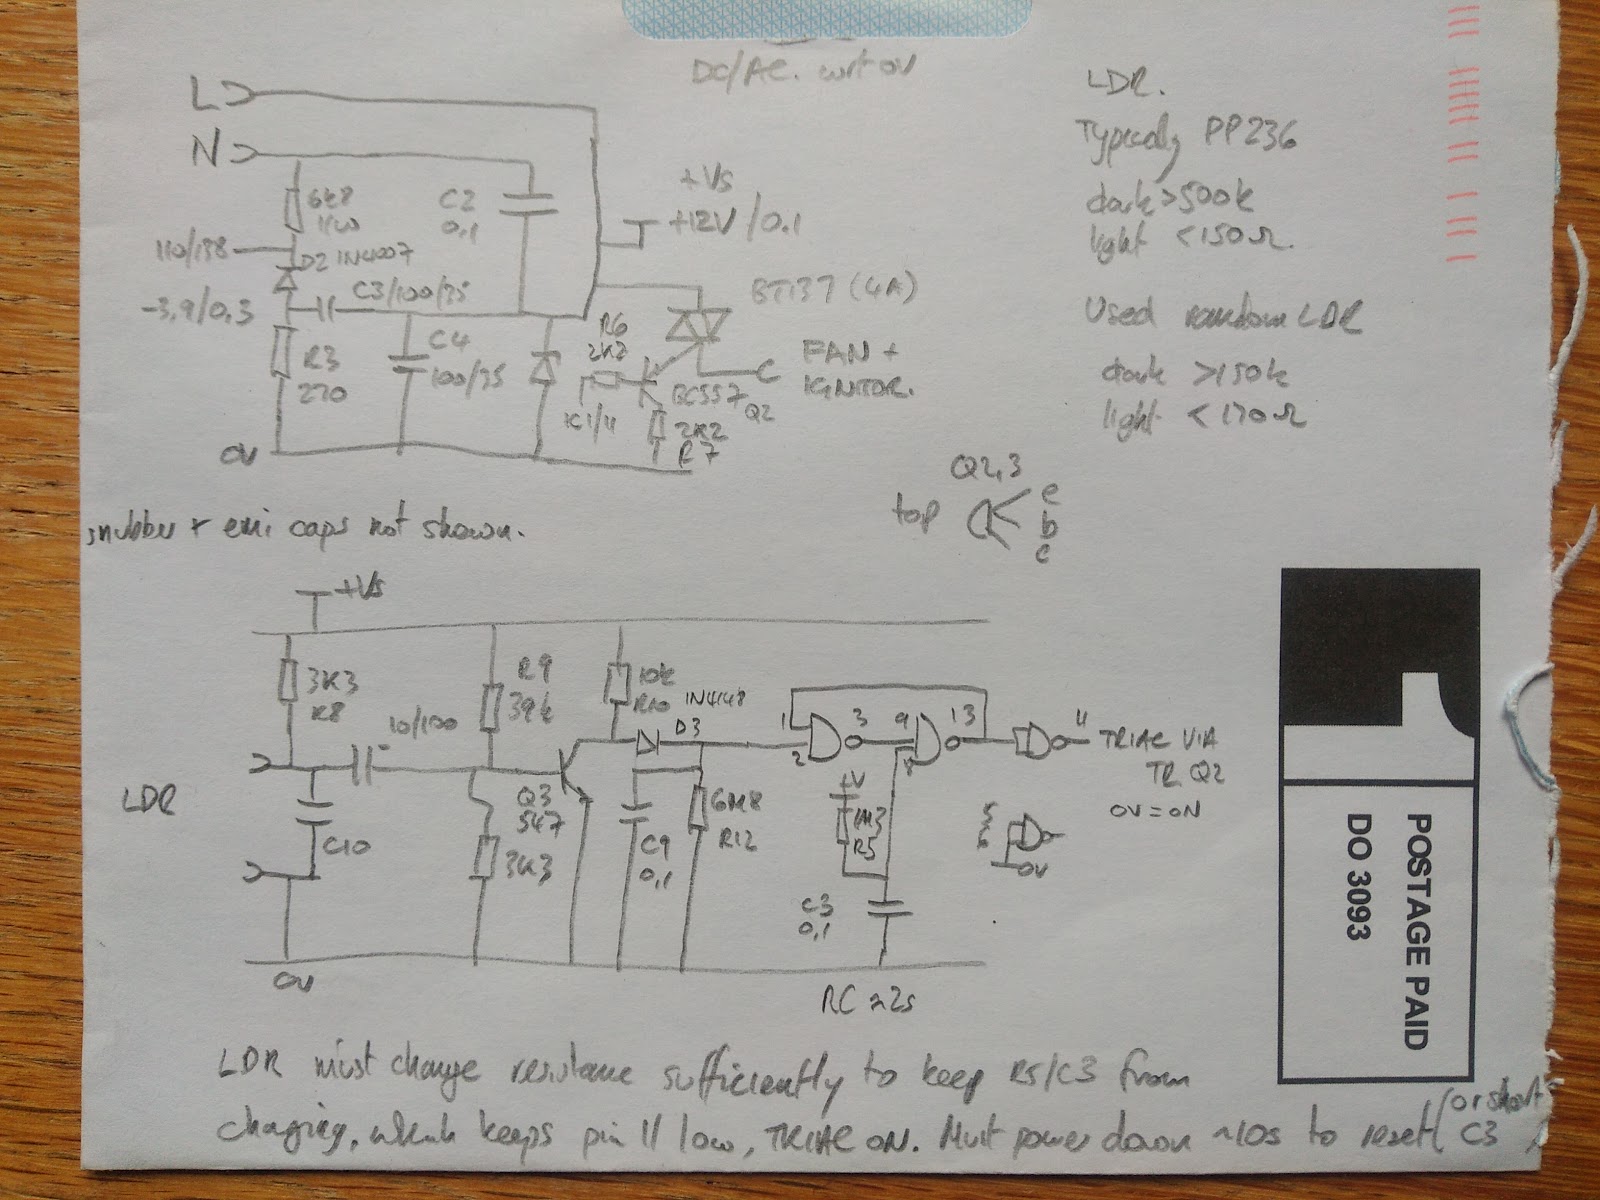 DC/AC. wrt 0V
L
N
6k8
1W
110/138
D2 1N4007
-3.9/0.3
C3/100/35
R3
270
C4
100/35
C2
0,1
0V
+Vs
+12V/0.1
BT137 (4A)
R6
2K2
IC1/11
BC557
Q2
2K2
R7
FAN +
IGNITOR.
LDR.
Typically PP236
dark >500k
light <150Ω.
Used random LDR
dark >150k
light <170Ω
Q2,3
top
e
b
c
snubber + emi caps not shown.
+Vs
3K3
R8
10/100
-
R9
39k
10k
R10
1N4148
D3
LDR
C10
Q3
547
3K3
C9
0,1
6M8
R12
1
2
3
9
8
13
11
+V
R5
C3
0,1
TRIAC VIA
TR Q2
0V=ON
5
6
0V
0V
RC ≈ 2s
LDR must change resistance sufficiently to keep R5/C3 from
charging, which keeps pin 11 low, TRIAC ON. Must power down ~10s to reset (or short
C3)
1
POSTAGE PAID
DO 3093